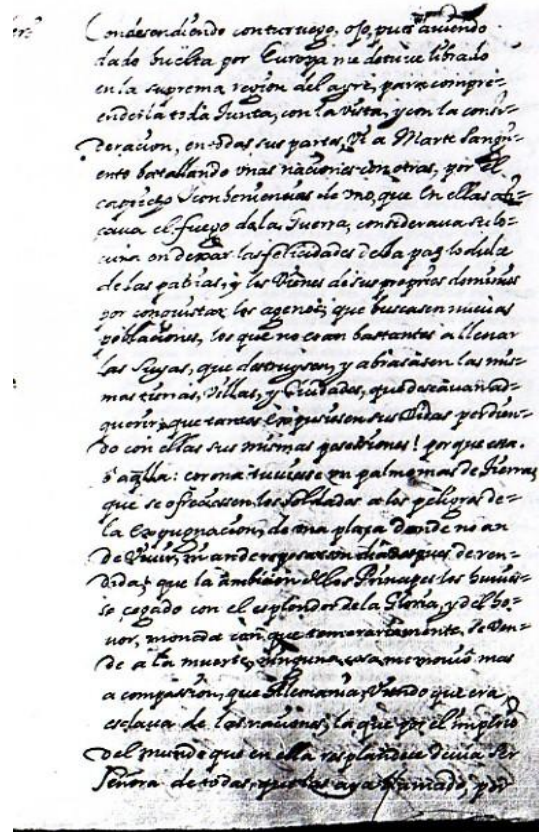 Condesendiendo con tu ruego, oso, pues auiendo
dado buelta por Europa me detuue librado
en la suprema region del ayre, para compre=
enderla toda Junta, con la vista, y con la consi=
deracion, en todas sus partes, Vi a Marte Sangri=
ento batallando vnas naciones con otras, por El
capricho I conbeniencias de vno, que En ellas ati=
çaua el fuego dela Guerra, considerava su lo=
cura en dexar las felicidades dela paz lo dulce
de las patrias, y los Vienes de sus proprios dominios
por conquistar los agenos, que buscasen nuevas
poblaciones, los que no eran bastantes a llenar
las Suyas, que destruysen, y abrasasen las mis=
mas tierras, Villas, y Ciudades, que deseauan ad=
querir, que tantos Expusiesen sus Vidas perdien=
do con ellas sus mismas posesiones! por que esta.
o aqlla: corona tuuiese un palmo mas de Tierra,
que se ofreciessen los Soldados a los peligros de=
la Expugnacion, de una plaça donde no an
de Viuir, ni ande reposar un dia despues de ren=
dida, que la ambicion dellos Principes los huuie=
se cegado con el esplendor de la Gloria, y del ho=
nor, moneda con que temerariamente, se Ven=
de a la muerte, ninguna cosa me mouio mas
a compassion, que Alemania, Viendo que era
esclaua de las naciones, la que por el imperio
del mundo que en ella resplandece deuia ser
Señora de todas, que las aya llamado, por